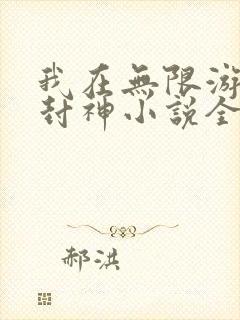 我在無限游
封神小說全
郝洪